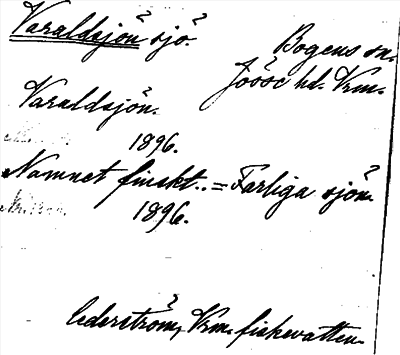 Varaldsjön sjö.
Bogens sn.
Jösse hd. Vrm.
Varaldsjön.
1896.
Namnet finskt.. = Farliga sjön.
1896.
Cederström, Vrm. fiskevatten.